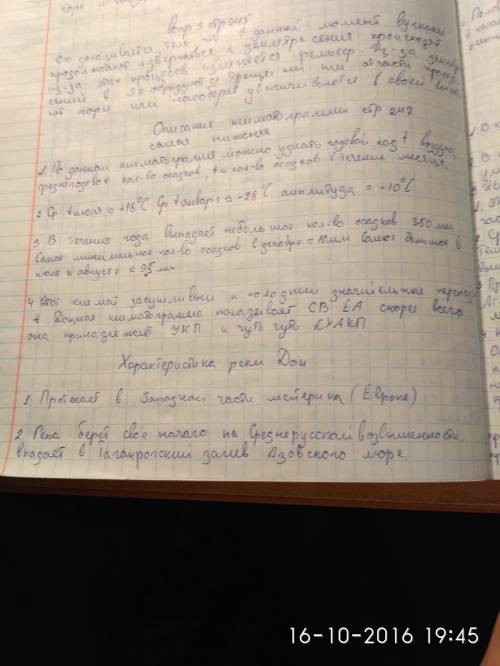 вопр 3 стр 245
Это доказывается тем что в данный момент вулканы
продолжают извергаться а землетрясения происходят
из-за этих процессов изменяется рельеф. Из-за земле
сений в ЗК образуются трещины или отчасти
ют горы или наоборот увеличиваются в своей высо
Описание климатограммы стр 247
самая нижняя
1. По данной климатограмме можно узнать годовой ход t воздуха,
среднегодовое кол-во осадков, t и кол-во осадков в течение месяца.
2 Ср t июля = +18°C Ср t января = -28°C амплитуда = -10°C
3 В течение года выпадает небольшое кол-во осадков 350 мм
Самое минимальное кол-во осадков в декабре = 10мм Самое большое в
июле и августе = 95 мм
4 Этот климат засушливый и холодный значительные перепады
t Данная климатограмма показывает СВ ЕА скорее всего
она принадлежит УКП и чуть чуть
Характеристика реки Дон
1. Протекает в Западной части материка (Европе)
2. Река берёт своё начало на Среднерусской возвышенности.
впадает в Таганрогский залив Азовского море.
16-10-2016 19:45